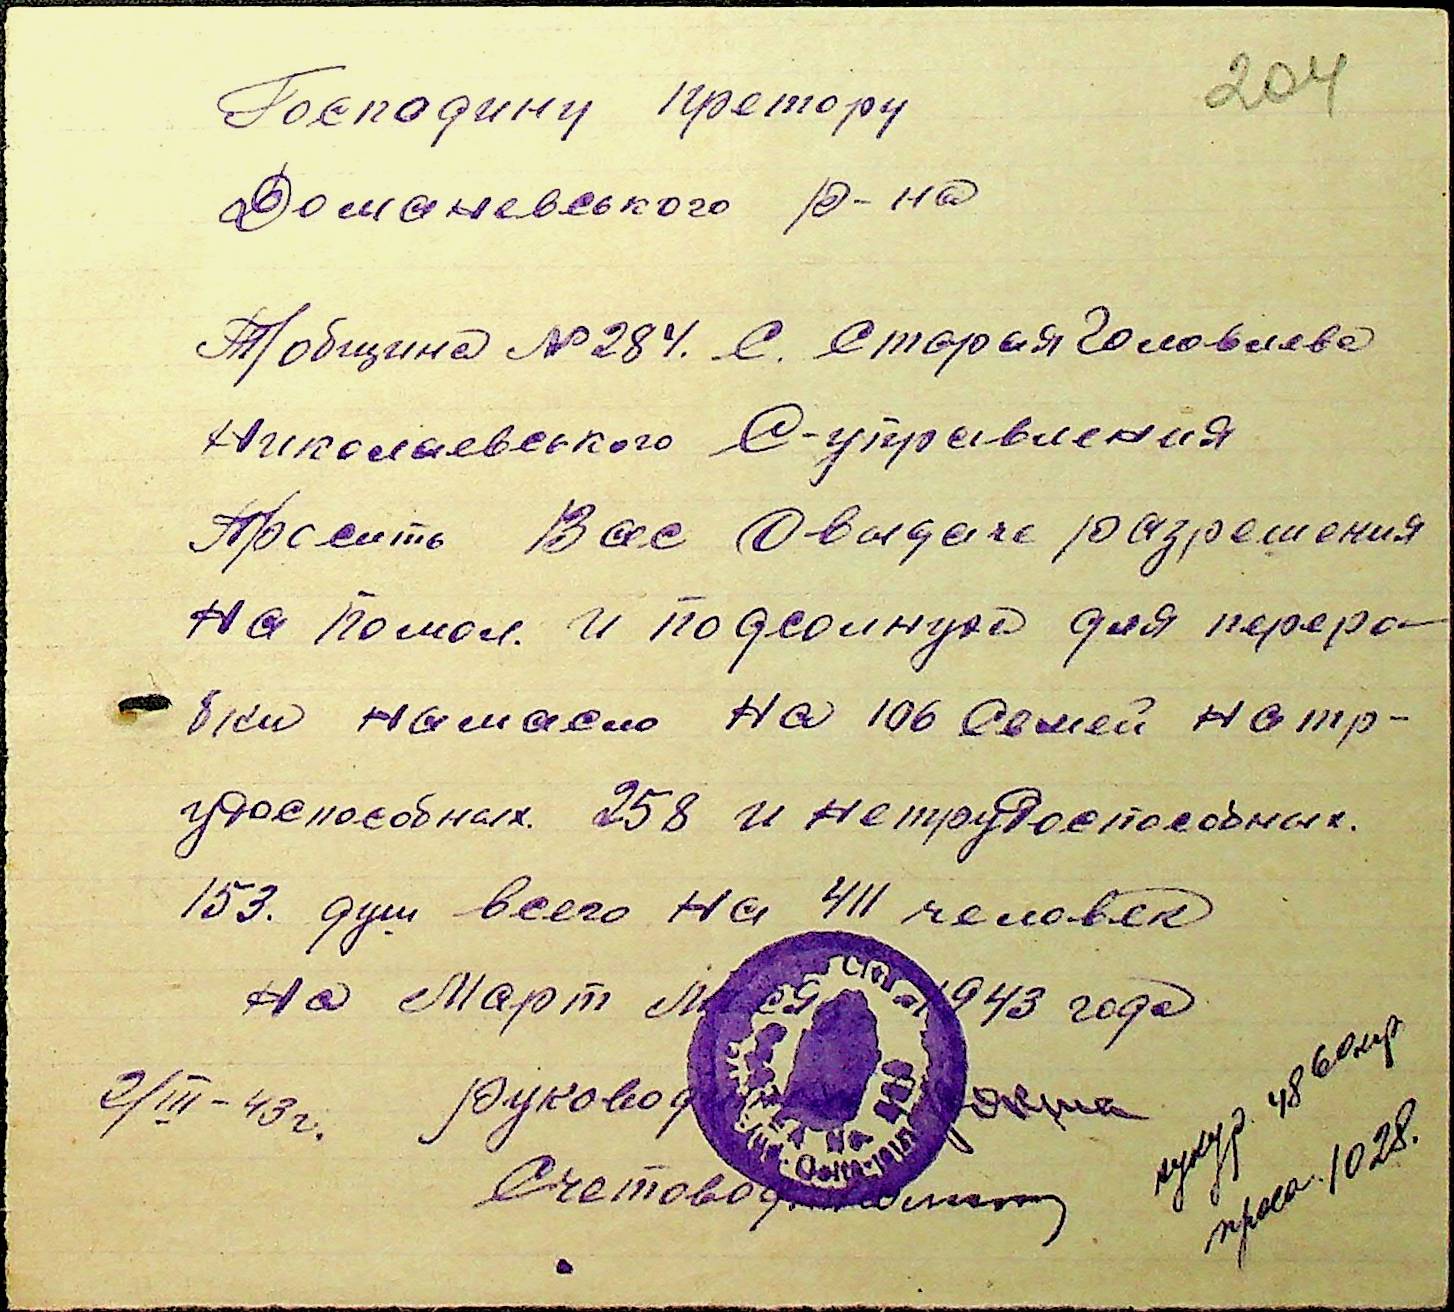 204
Господину претору
Доманевського р-на
Тр/община № 284. С. Старая Головлева
Николаевського С-управления
Просить Вас О выдаче разрешения
на помол. и подсолнуха для перера-
бки намасло на 106 семей натр-
удоспособных. 258 и нетрудоспособных.
153. душ всего на 411 человек
на Март 1943 года
2/III-43г. Руковод
Счетовод
кукур. 48 60
проса. 1028.